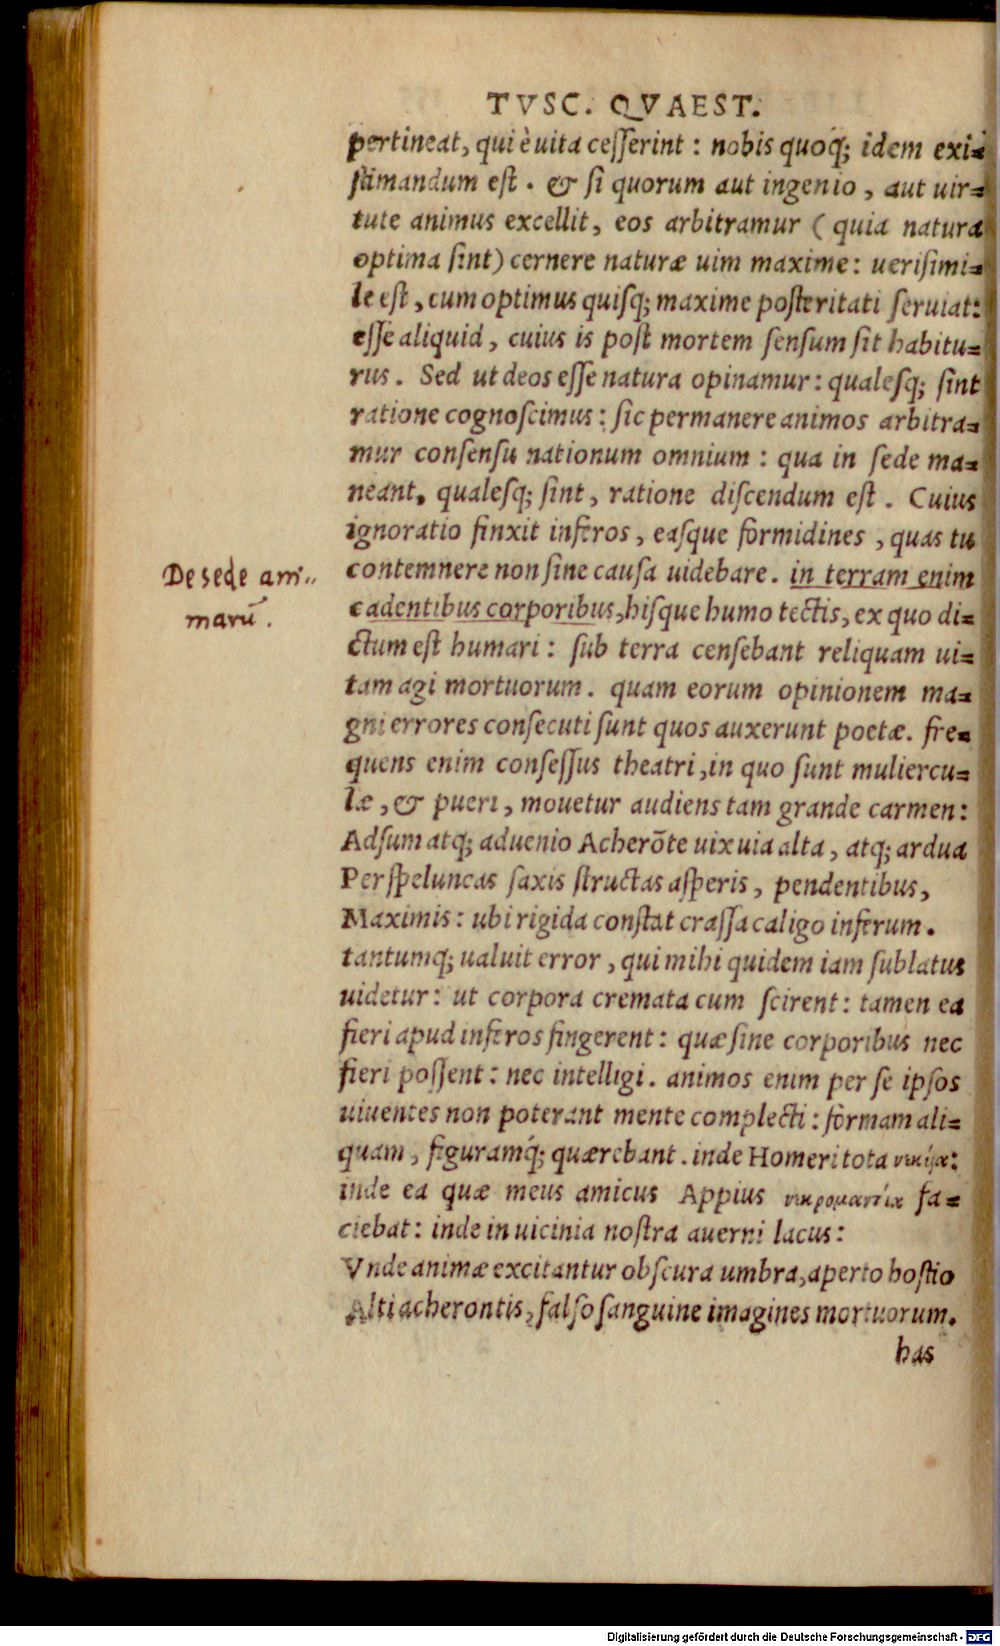 TVSC. QVAEST.
pertineat, qui è uita cesserint : nobis quoq́; idem exi-
stimandum est . & si quorum aut ingenio , aut uir-
tute animus excellit, eos arbitramur ( quia natura
optima sint) cernere naturæ uim maxime : uerisimi-
le est , cum optimus quisq; maxime posteritati seruiat:
esse aliquid , cuius is post mortem sensum sit habitu-
rus . Sed ut deos esse natura opinamur : qualesq; sint
ratione cognoscimus : sic permanere animos arbitra-
mur consensu nationum omnium : qua in sede ma-
neant, qualesq; sint , ratione discendum est . Cuius
ignoratio finxit inferos , easque formidines , quas tu
contemnere non sine causa uidebare . in terram enim
De sede ani-
cadentibus corporibus, hisque humo tectis, ex quo di-
marū .
ctum est humari : sub terra censebant reliquam ui-
tam agi mortuorum . quam eorum opinionem ma-
gni errores consecuti sunt quos auxerunt poetæ. fre-
quens enim consessus theatri, in quo sunt muliercu-
læ , & pueri , mouetur audiens tam grande carmen :
Adsum atq; aduenio Acherōte uix uia alta , atq; ardua
Per speluncas saxis structas asperis , pendentibus,
Maximis : ubi rigida constat crassa caligo inferum .
tantumq; ualuit error , qui mihi quidem iam sublatus
uidetur : ut corpora cremata cum scirent : tamen ea
fieri apud inferos fingerent : quæ sine corporibus nec
fieri possent : nec intelligi . animos enim per se ipsos
uiuentes non poterant mente complecti : formam ali-
quam , figuramq́; quærebant . inde Homeri tota νεκύια:
inde ea quæ meus amicus Appius νεκρομαντεία fa-
ciebat : inde in uicinia nostra auerni lacus :
Vnde animæ excitantur obscura umbra, aperto hostio
Alti acherontis, falso sanguine imagines mortuorum.
has
Digitalisierung gefördert durch die Deutsche Forschungsgemeinschaft - DFG